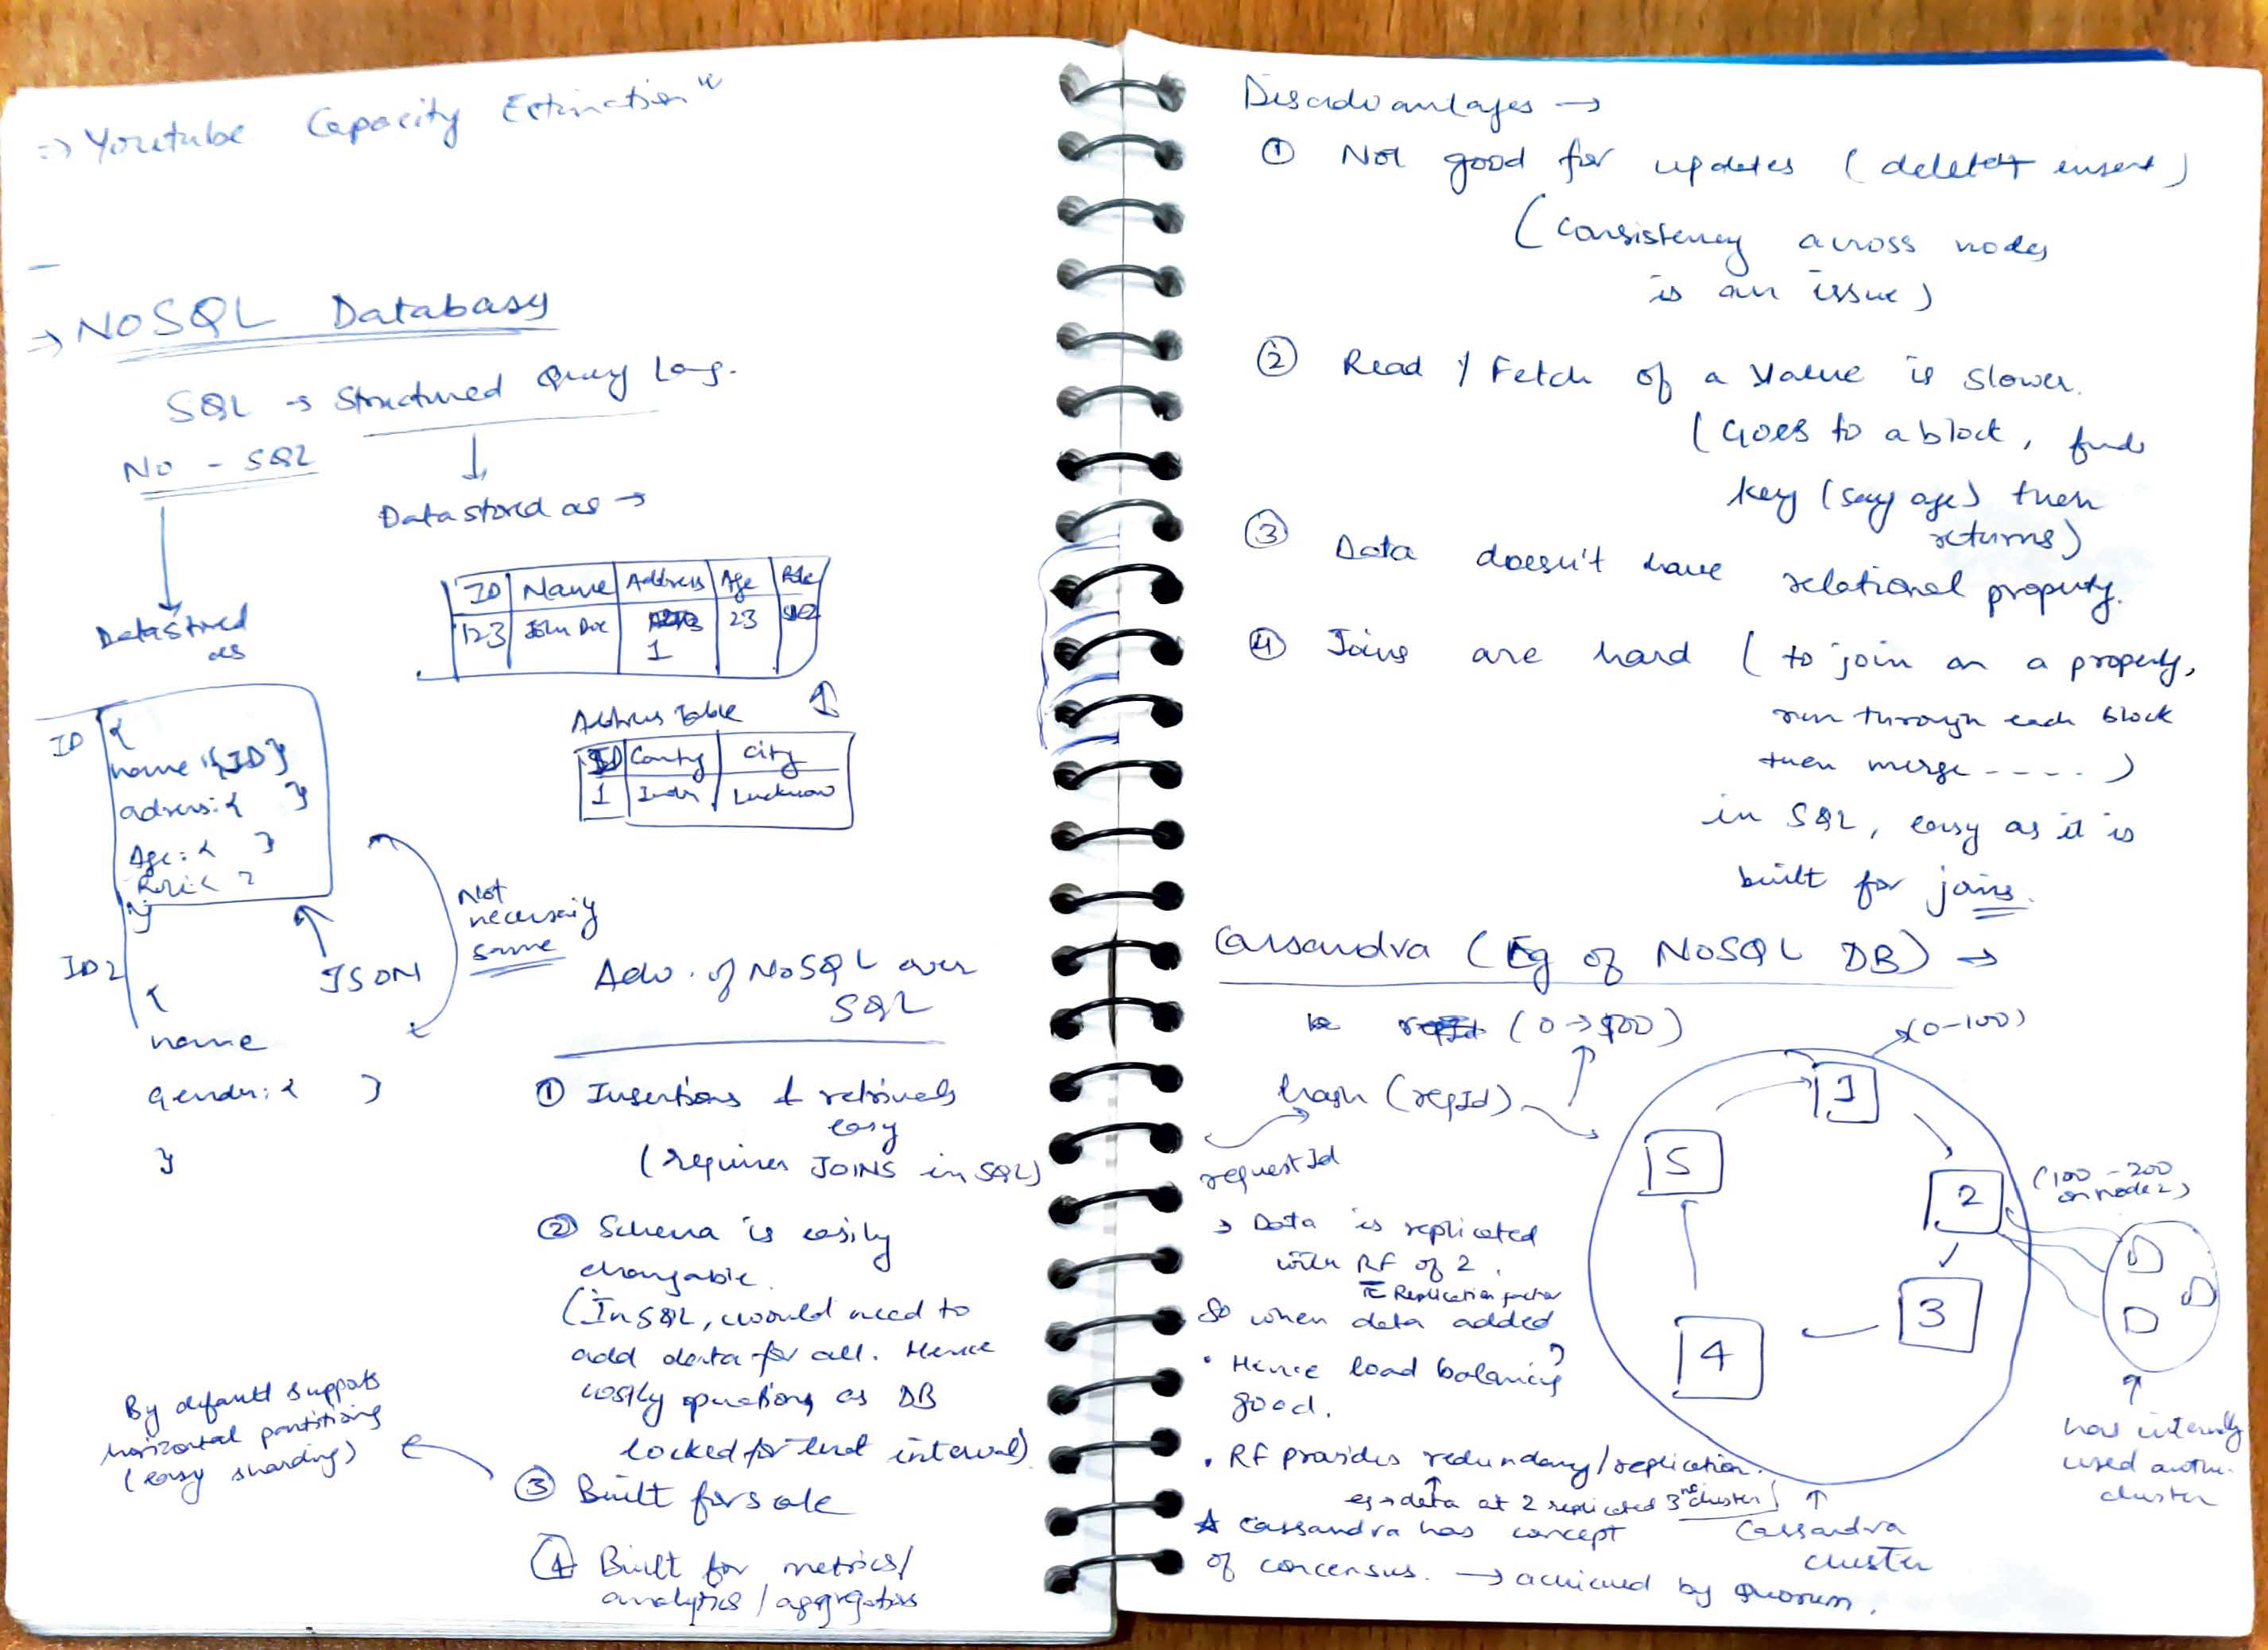 => Youtube Capacity Estimation"
→ NOSQL Databasy
SQL → Structured Query Lang.
No - SQL
Data stored as →
Data stored
as
ID | Name | Address | Age | Role
123 | John Doe | 1 | 23 |
Address Table
ID | Country | City
1 | India | Lucknow
ID {
name:{ID}
adress:{ }
Age:{ }
Role:{ }
}
JSON
Not
necessarily
same
ID2
{
name
gender:{ }
}
Adv. of NoSQL over
SQL
① Insertions & retrievals
easy
(requires JOINS in SQL)
② Schema is easily
changable.
(In SQL, would need to
add data for all. Hence
costly operations as DB
locked for that interval)
③ Built for scale
By default supports
horizontal partitioning
(easy sharding)
④ Built for metrics/
analytics / aggregation
Disadvantages →
① Not good for updates (delete+ insert)
(consistency across nodes
is an issue)
② Read / Fetch of a value is slower.
(Goes to a block, finds
key (say age) then
returns)
③ Data doesn't have relational property.
④ Joins are hard (to join on a property,
run through each block
then merge -----)
in SQL, easy as it is
built for joins.
Cassandra (Eg of NOSQL DB) →
(0→500)
(0-100)
hash (reqId)
requestId
1
2
3
4
5
(100-200
on node 2)
→ Data is replicated
with RF of 2.
Replication factor
So when data added
• Hence load balancing
good.
• RF provides redundancy/replication.
eg → data at 2 replicated 3rd cluster
has internally
used another
cluster
Cassandra
cluster
☆ Cassandra has concept
of concensus. → achieved by Quorum.